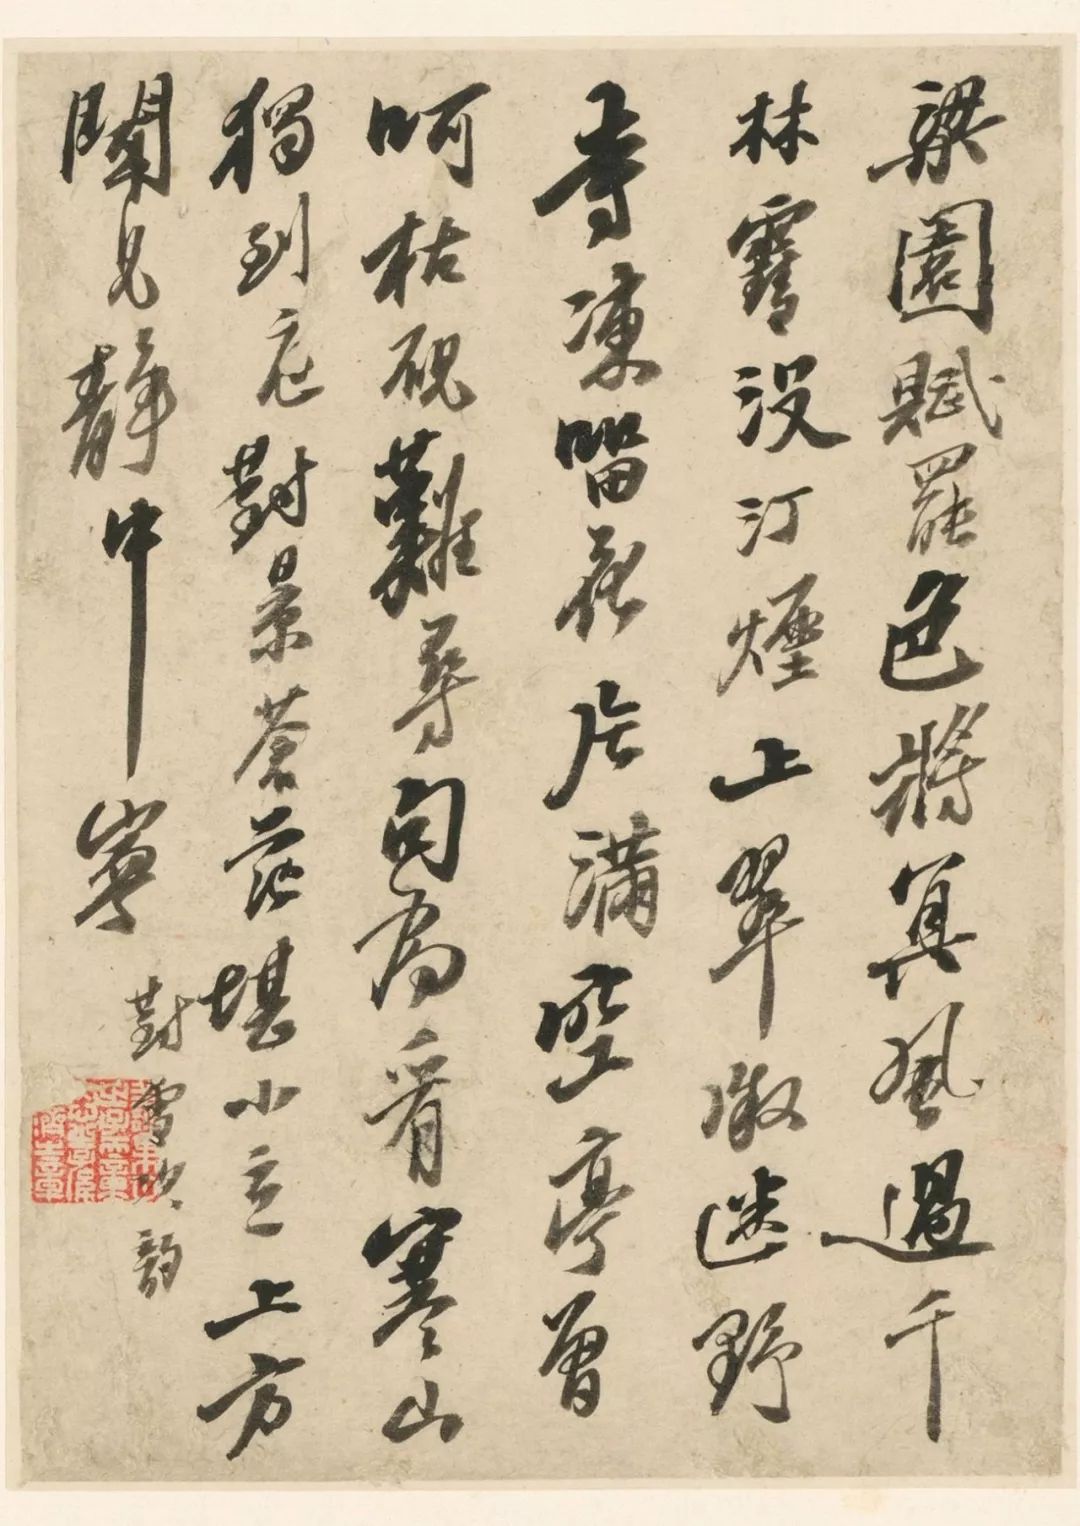 梁園賦罷色將冥風過千
林霽沒汀煙上翠微迷野
寺凍留花片滿亭曾
呵枯硯難尋句為看寒山
獨到對景蒼茫堪小立上方
聞見靜中寧
對雪次韻